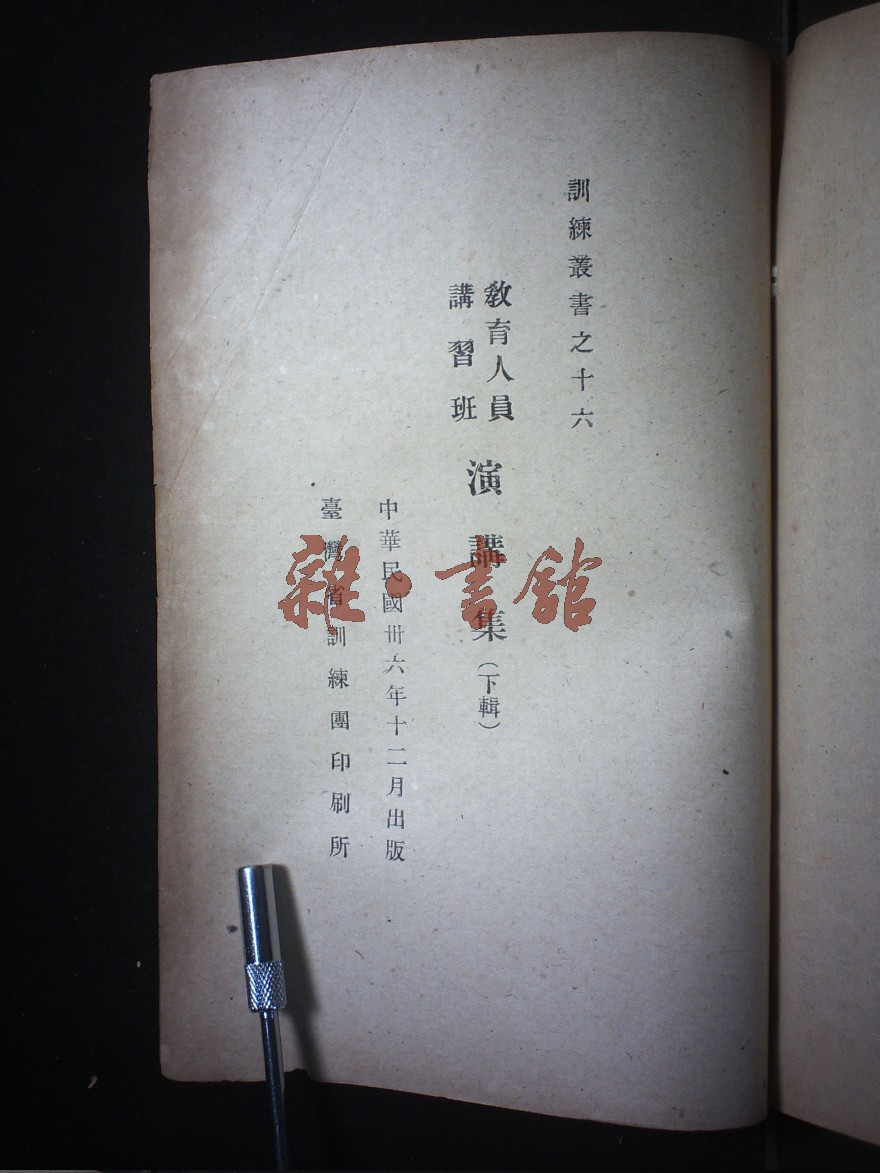 訓練叢書之十六
教育人員
講習班
演講集(下輯)
中華民國卅六年十二月出版
臺灣省訓練團印刷所
雜·書館